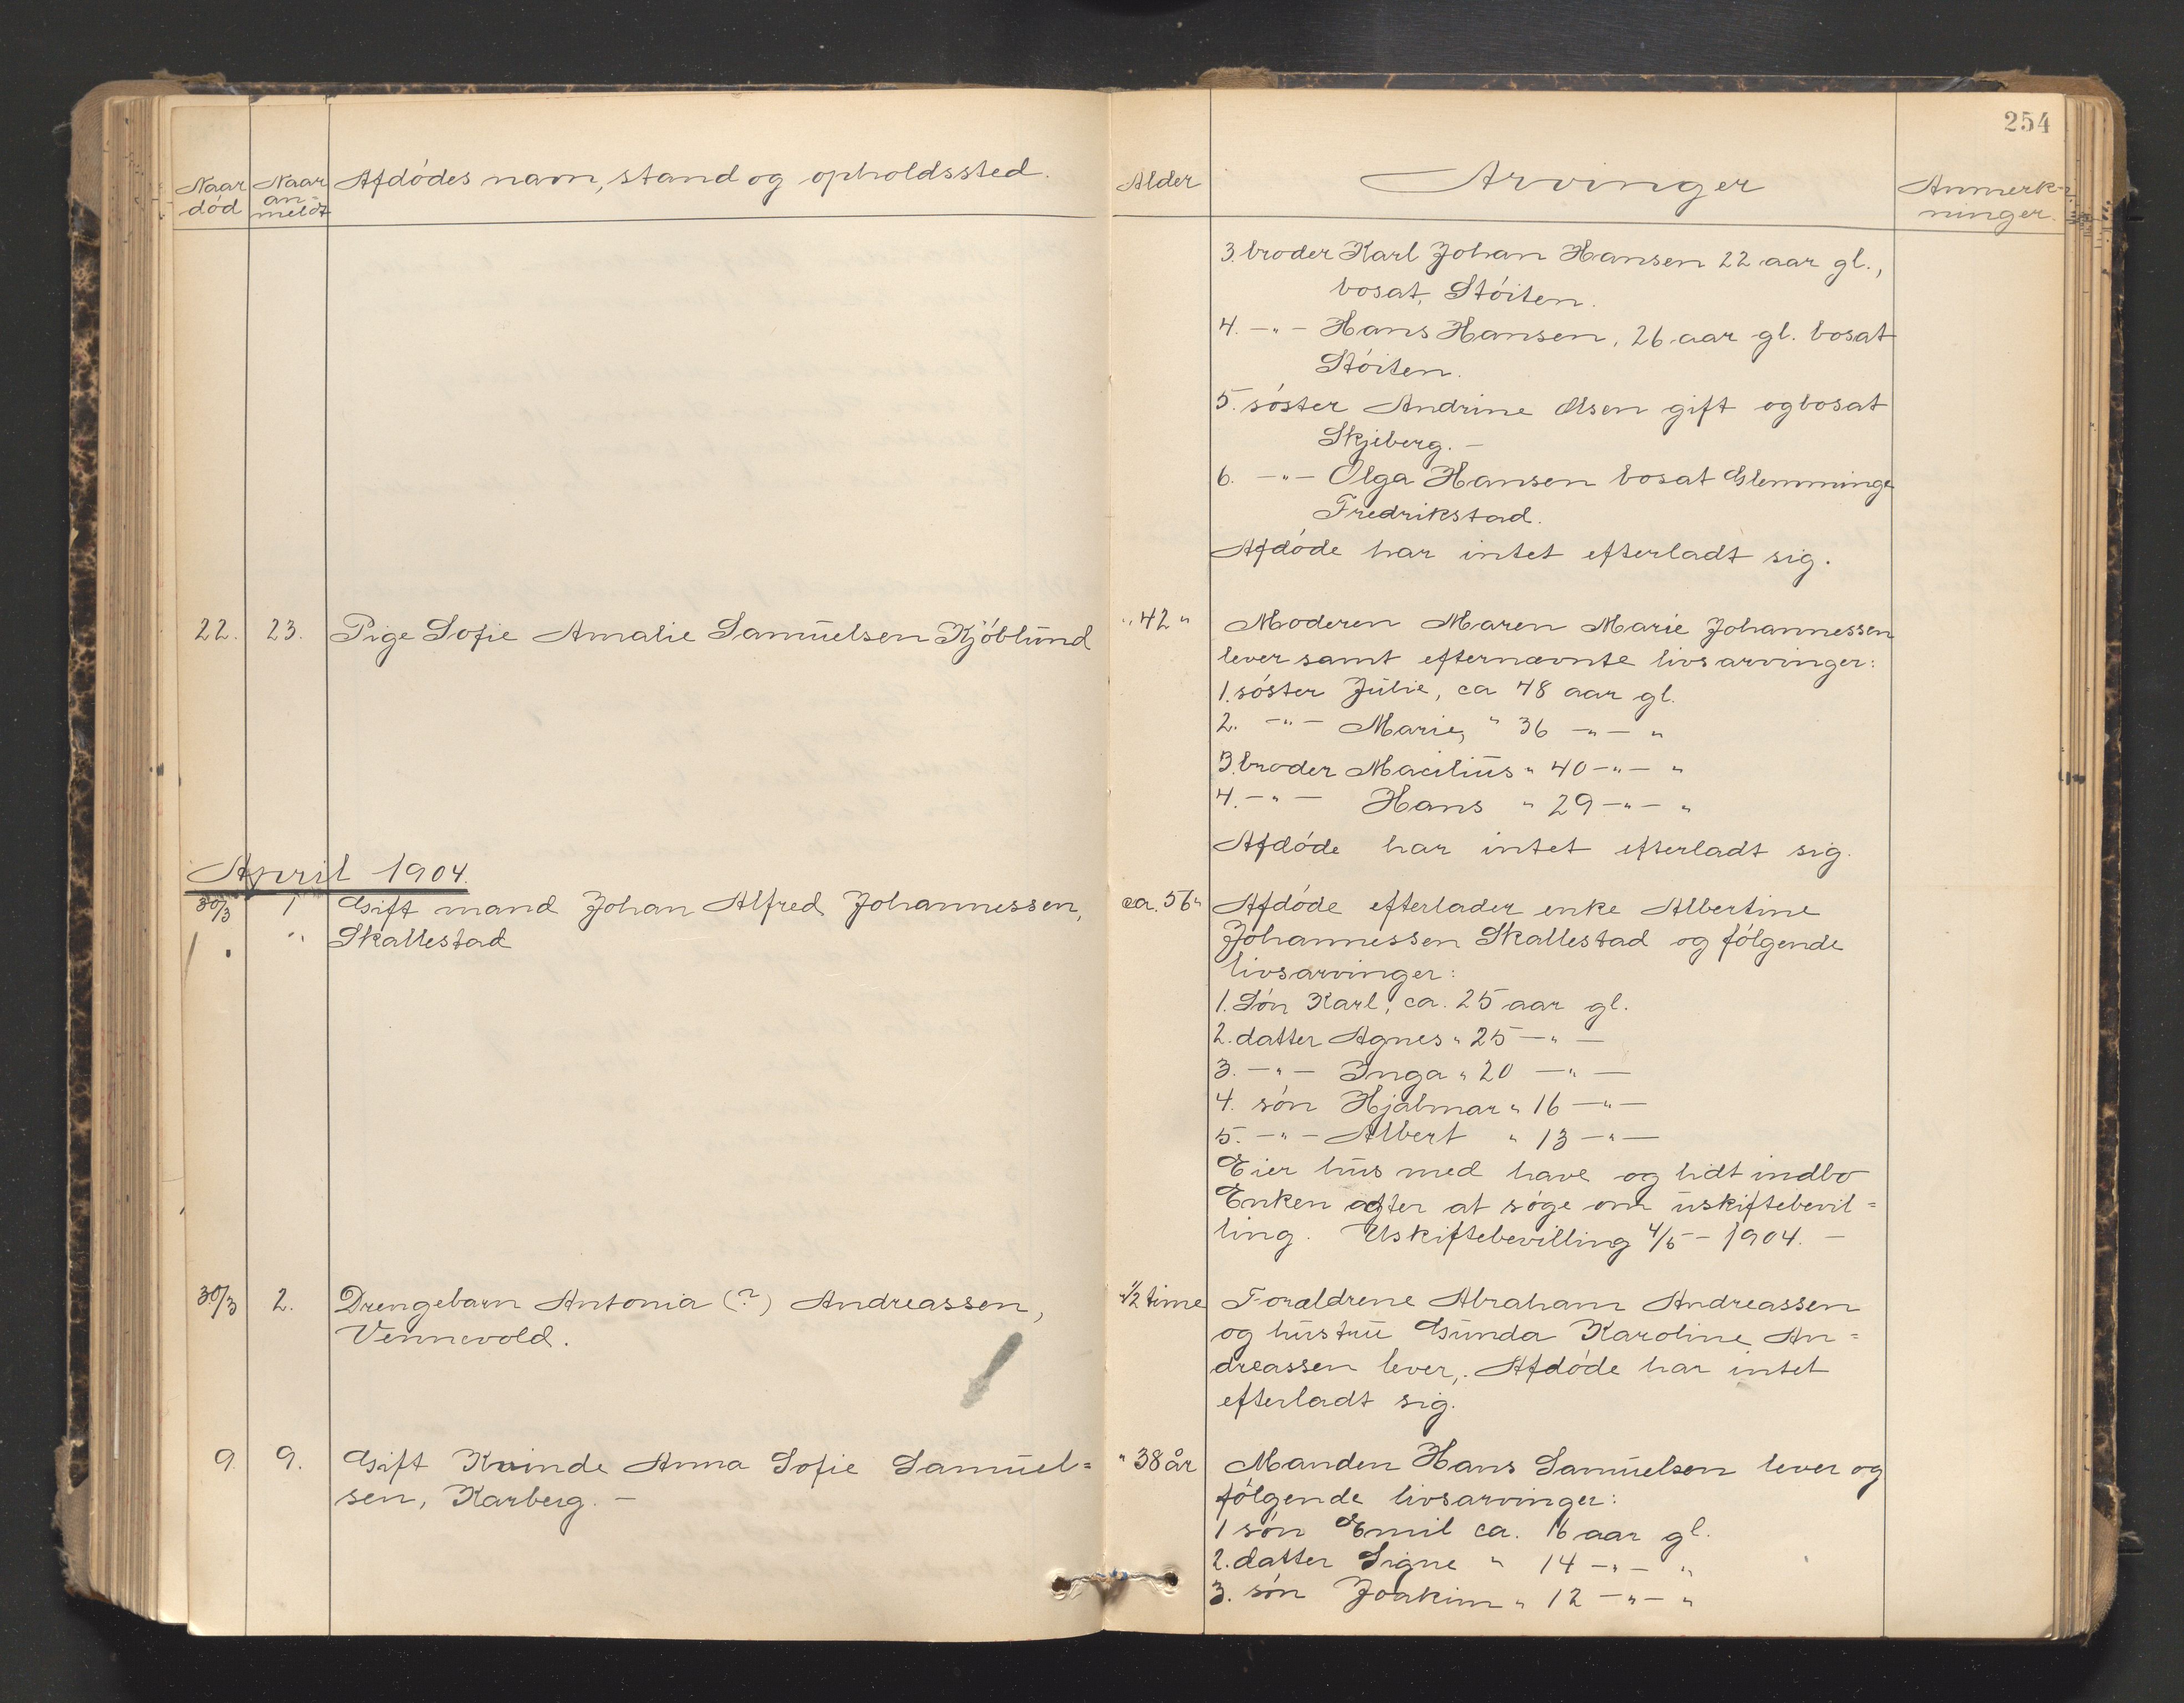 254
Naar død
Naar an-meldt
Afdødes navn, stand og opholdssted.
Alder
Arvinger
Anmerk-ninger.
3. broder Karl Johan Hansen 22 aar gl.,
bosat, Stöiten.
4. -„- Hans Hansen, 26 aar gl. bosat
Stöiten.
5. søster Andrine Olsen gift og bosat
Skjeberg. -
6. -„- Olga Hansen bosat Glemminge
Fredrikstad.
Afdøde har intet efterladt sig.
22. 23. Pige Sofie Amalie Samuelsen Kjöblund
„ 42 „
Moderen Maren Marie Johannessen
lever samt efternævnte livsarvinger:
1. søster Julie, ca 48 aar gl.
2. -„- Marie, „ 36 -„- „
3. broder Macilius „ 40 -„- „
4. -„- Hans „ 29 -„- „
Afdøde har intet efterladt sig.
April 1904.
30/3 1 Gift mand Johan Alfred Johannessen,
„ Skallestad
ca. 56 „
Afdøde efterlader enke Albertine
Johannessen Skallestad og følgende
livsarvinger:
1. Søn Karl, ca. 25 aar gl.
2. datter Agnes „ 25 -„-
3. -„- Inga „ 20 -„-
4. søn Hjalmar „ 16 -„-
5. -„- Albert „ 13 -„-
Eier hus med have og lidt indbo
Enken agter at søge om uskiftebevil=
ling. Uskiftebevilling 4/5 - 1904. -
30/3 2. Drengebarn Antonia (?) Andreassen,
Vennevold.
1/2 time
Forældrene Abraham Andreassen
og hustru Gunda Karoline An=
dreassen lever,. Afdøde har intet
efterladt sig.
9. 9. Gift Kvinde Anna Sofie Samuel=
sen, Karberg. -
„ 38 år
Manden Hans Samuelsen lever og
følgende livsarvinger:
1 søn Emil ca. 16 aar gl.
2. datter Signe „ 14 -„- „
3. søn Joakim „ 12 -„- „